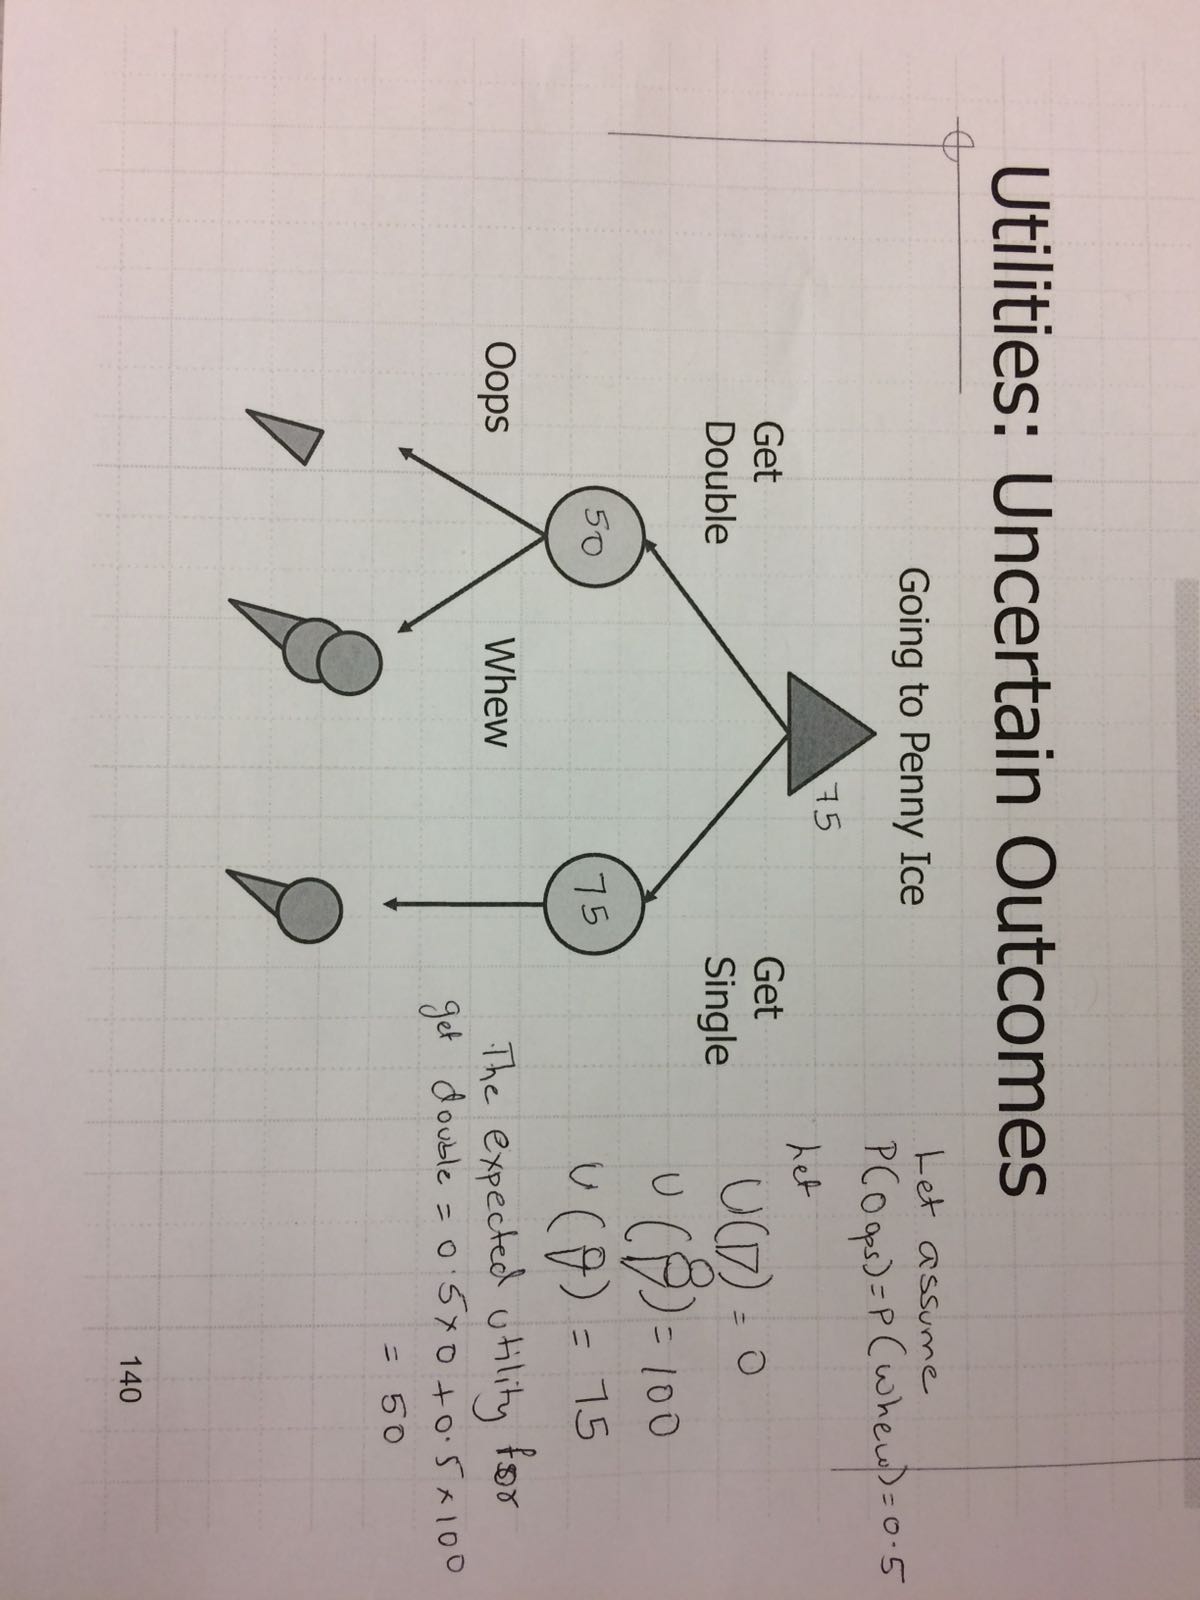 Utilities: Uncertain Outcomes
Going to Penny Ice
75
Get
Double
Get
Single
50
75
Oops
Whew
Let assume
P(Oops)=P(Whew)=0.5
Let
U( )=0
U( )=100
U( )=75
The expected utility for
get double = 0.5×0+0.5×100
= 50
140